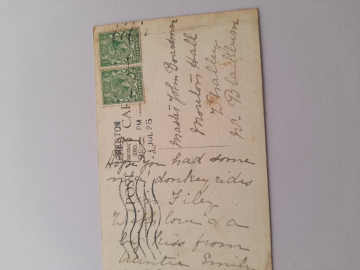 PRESTON
PM
POST CARD
Master John Boardman
Moreton Hall
Whalley
Nr Blackburn
Hope you had some
nice donkey rides
Filey
With love & a
kiss from
Auntie Emily